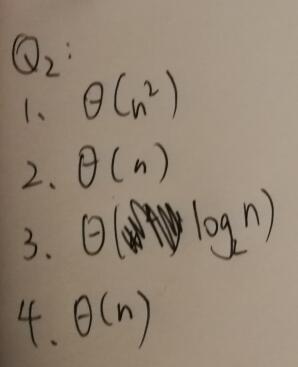 Q₂:
1、 θ(n²)
2、 θ(n)
3、 θ(log₂n)
4、 θ(n)